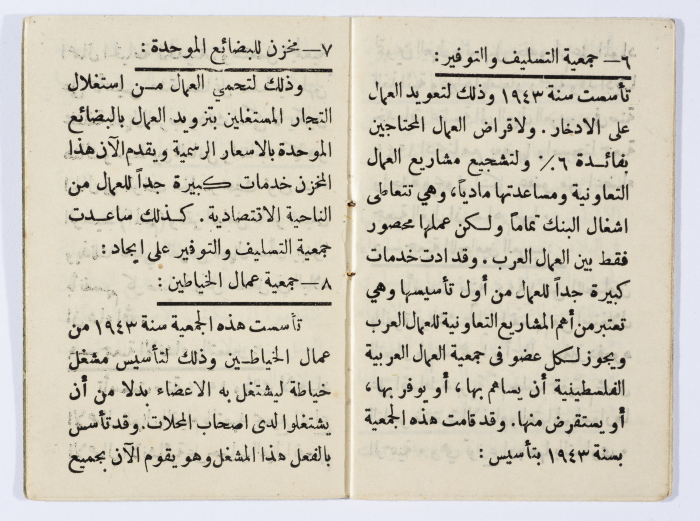 ٦ — جمعية التسليف والتوفير :
تأسست سنة ١٩٤٣ وذلك لتعويد العمال
على الادخار . ولاقراض العمال المحتاجين
بفائدة ٦٪ ولتشجيع مشاريع العمال
التعاونية ومساعدتها مادياً، وهي تتعاطى
اشغال البنك تماماً ولكن عملها محصور
فقط بين العمال العرب . وقد ادت خدمات
كبيرة جداً للعمال من أول تأسيسها وهي
تعتبر من أهم المشاريع التعاونية للعمال العرب
ويجوز لكل عضو في جمعية العمال العربية
الفلسطينية أن يساهم بها ، أو يوفر بها ،
أو يستقرض منها . وقد قامت هذه الجمعية
بسنة ١٩٤٣ بتأسيس :
٧ — مخزن للبضائع الموحدة :
وذلك لتحمي العمال مـن إستغلال
التجار المستغلين بتزويد العمال بالبضائع
الموحدة بالاسعار الرسمية ويقدم الآن هذا
المخزن خدمات كبيرة جداً للعمال من
الناحية الاقتصادية . كـذلك ساعـدت
جمعية التسليف والتوفير على ايجاد :
٨ — جمعية عمال الخياطين :
تأسست هذه الجمعية سنة ١٩٤٣ من
عمال الخياطـين وذلك لتأسيس مشغل
خياطة ليشتغل به الاعضاء بدلا من أن
يشتغلوا لدى اصحاب المحلات. وقد تأسس
بالفعل هذا المشغل وهو يقوم الآن بجميع